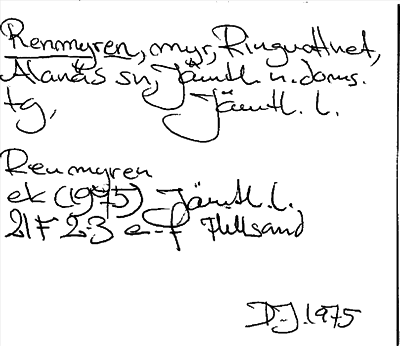 Renmyren, myr, Ringvattnet,
Alanäs sn, Jämtl. n. doms.
tg, Jämtl. l.
Renmyren
ek (1975) Jämtl. l.
21F 2-3 e-f Hällsand
D-J. 1975